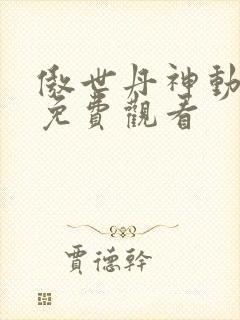 傲世丹神動
免費觀看
賈德幹